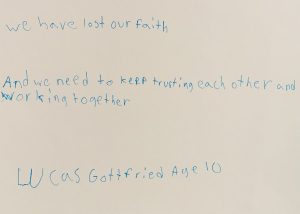 we have lost our faith
And we need to keep trusting each other and
working together
LUCAS Gottfried Age 10